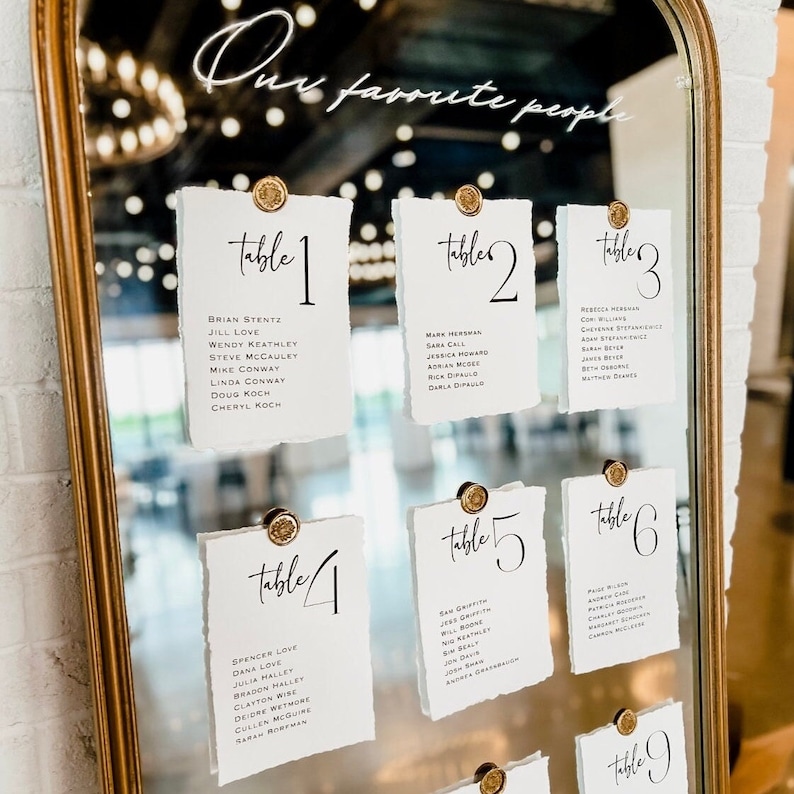 Our favorite people
table 1
BRIAN STENTZ
JILL LOVE
WENDY KEATHLEY
STEVE MCCAULEY
MIKE CONWAY
LINDA CONWAY
DOUG KOCH
CHERYL KOCH
table 2
MARK HERSMAN
SARA CALL
JESSICA HOWARD
ADRIAN MCGEE
RICK DIPAULO
DARLA DIPAULO
table 3
REBECCA HERSMAN
CORI WILLIAMS
CHEYENNE STEFANKIEWICZ
ADAM STEFANKIEWICZ
SARAH BEYER
JAMES BEYER
BETH OSBORNE
MATTHEW DEAMES
table 4
SPENCER LOVE
DANA LOVE
JULIA HALLEY
BRADON HALLEY
CLAYTON WISE
DEIDRE WETMORE
CULLEN MCGUIRE
SARAH BORFMAN
table 5
SAM GRIFFITH
JESS GRIFFITH
WILL BOONE
NIQ KEATHLEY
SIM SEALY
JON DAVIS
JOSH SHAW
ANDREA GRASSBAUGH
table 6
PAIGE WILSON
ANDREW CADE
PATRICIA ROEDERER
CHARLEY GOODWIN
MARGARET SCHOCKEN
CAMRON MCCLEESE
table 9